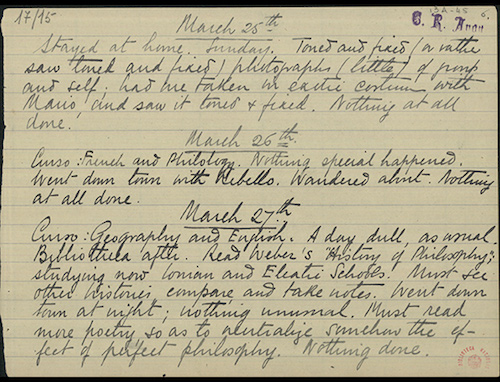 17/15
13A-45
6.
C. R. Anon
March 25th
Stayed at home. Sunday. Toned and fixed (or rather
saw toned and fixed) photographs (little) of group
and self; had one taken in exotic costume with
Mario, and saw it toned & fixed. Nothing at all
done.
March 26th.
Curso: French and Philology. Nothing special happened.
Went down town with Rebello. Wandered about. Nothing
at all done.
March 27th
Curso: Geography and English. A day dull, as usual
Bibliotheca after. Read Weber's "History of Philosophy";
studying now Ionian and Eleatic Schools. Must see
other histories, compare and take notes. Went down
town at night; nothing unusual. Must read
more poetry so as to neutralize somehow the ef-
fect of perfect philosophy. Nothing done.